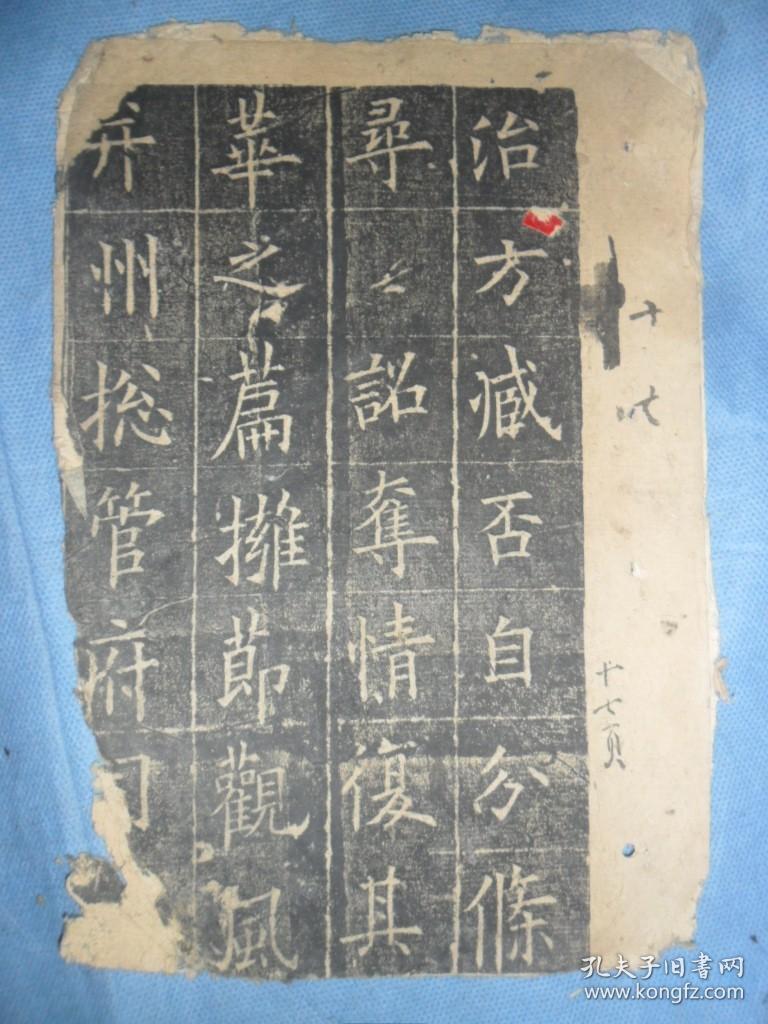 治方臧否自分條
尋詔奪情復其
華之篇擁莭觀風
并州捴管府司
十七頁
孔夫子旧书网
www.kongfz.com